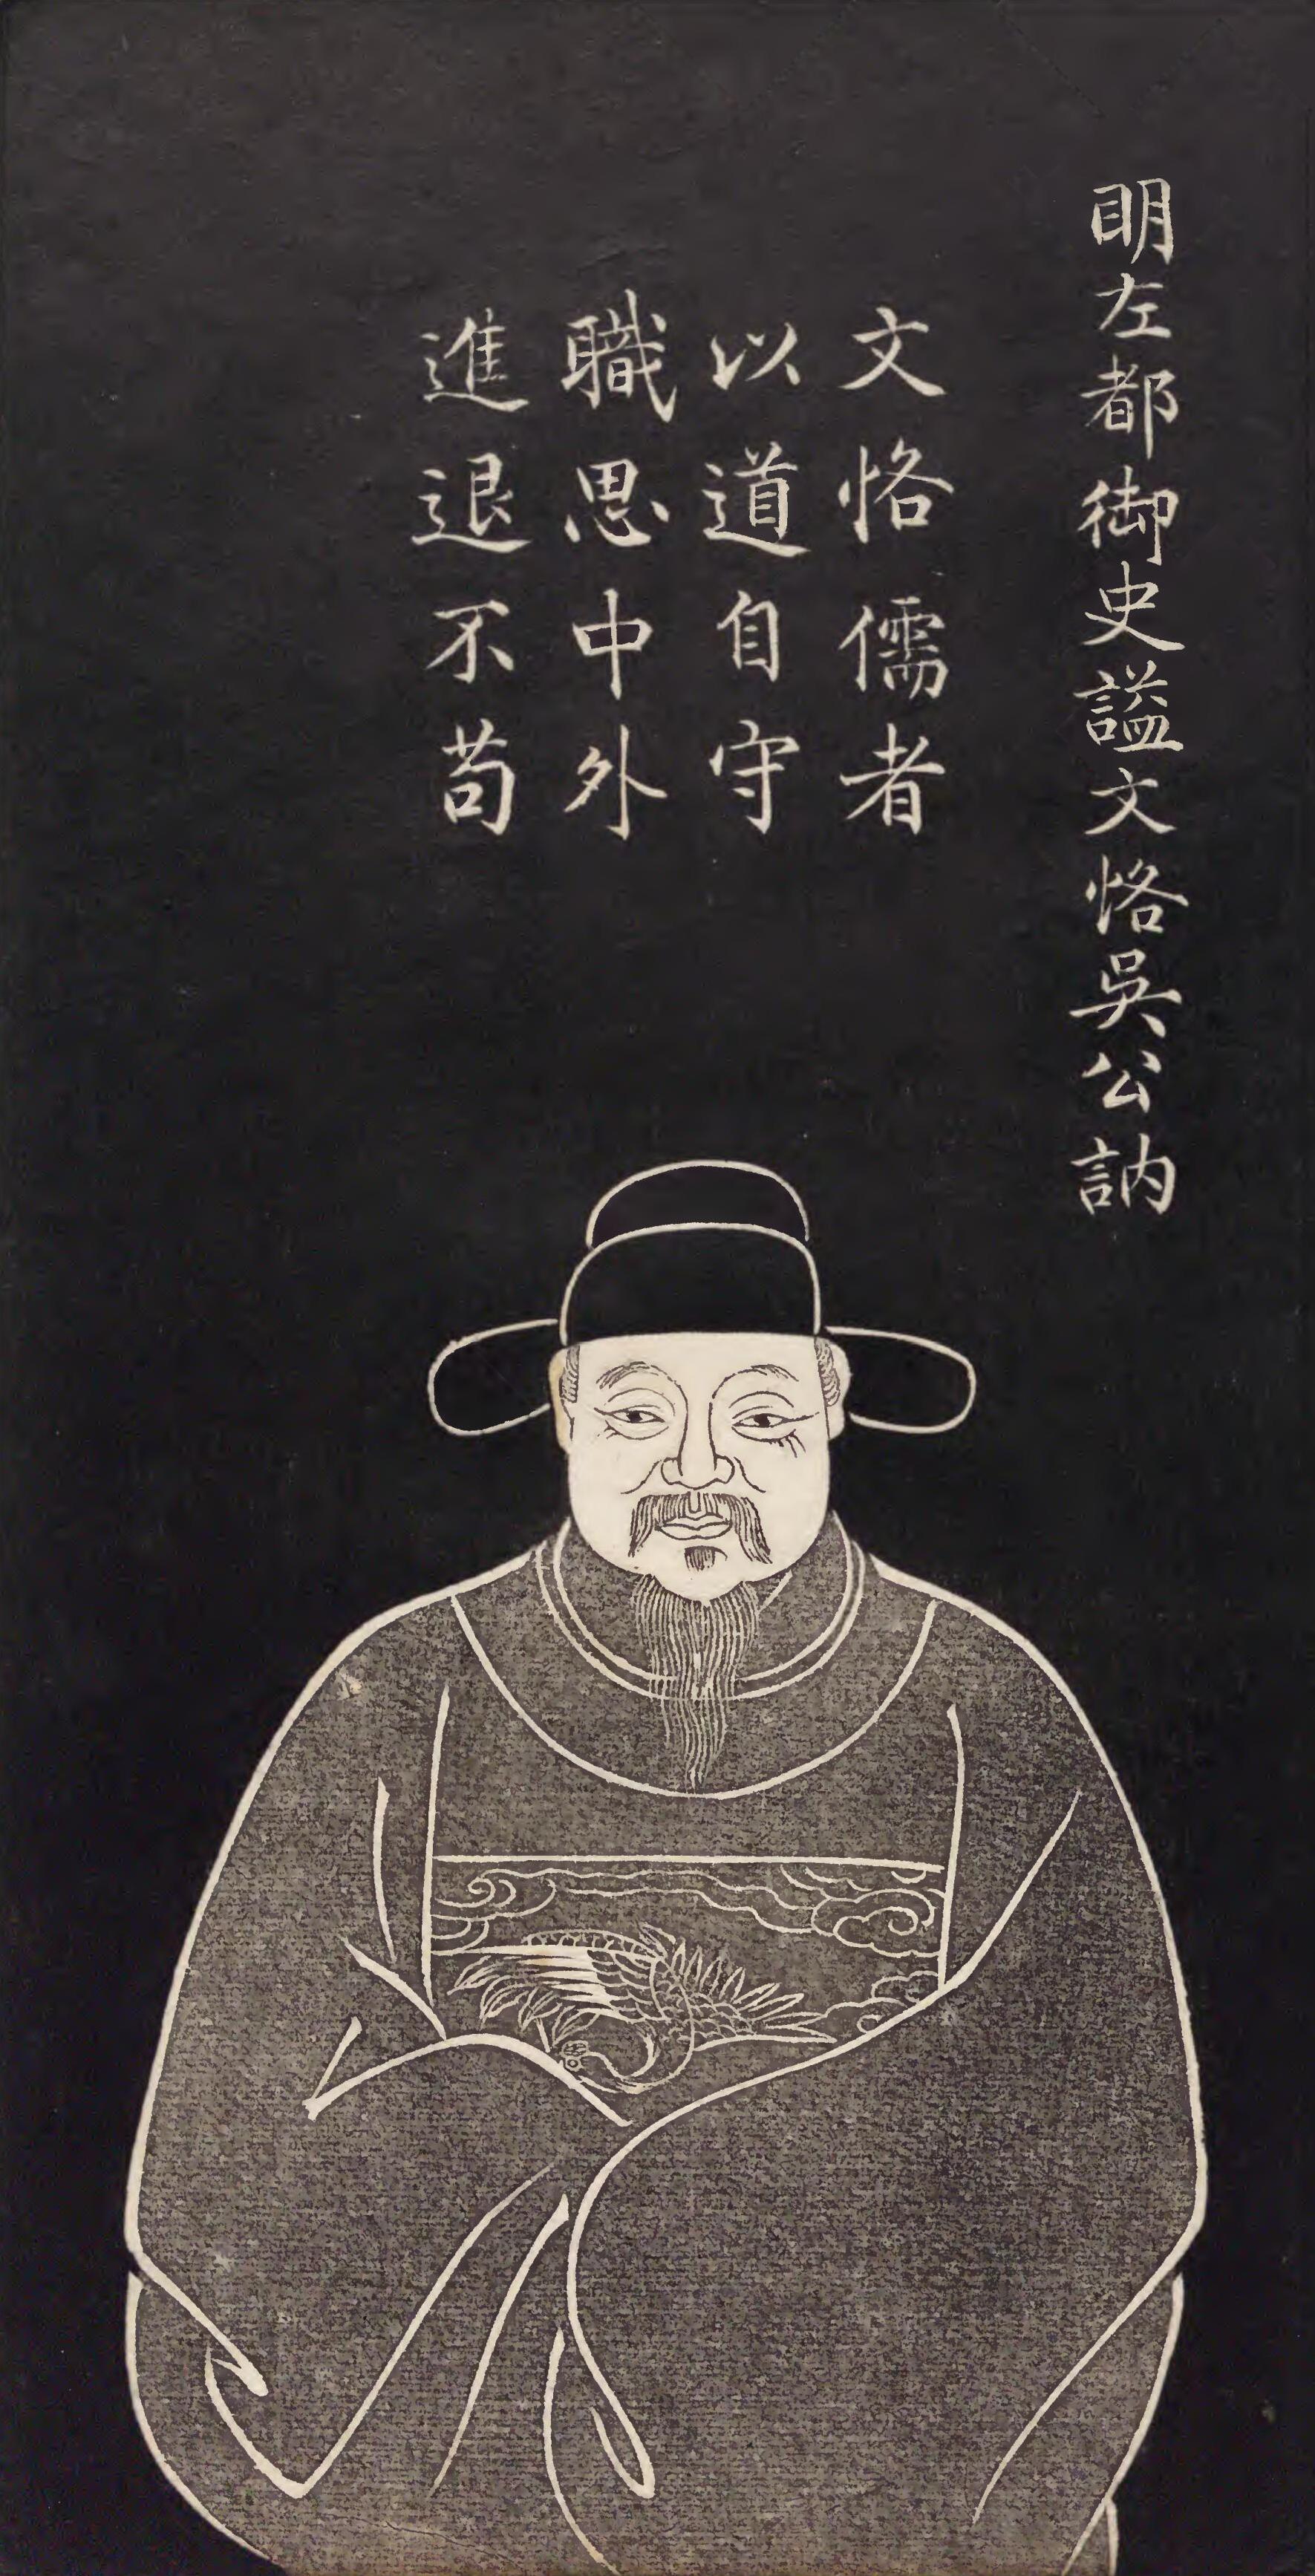 明左都御史謚文恪吳公訥
文恪儒者
以道自守
職思中外
進退不苟